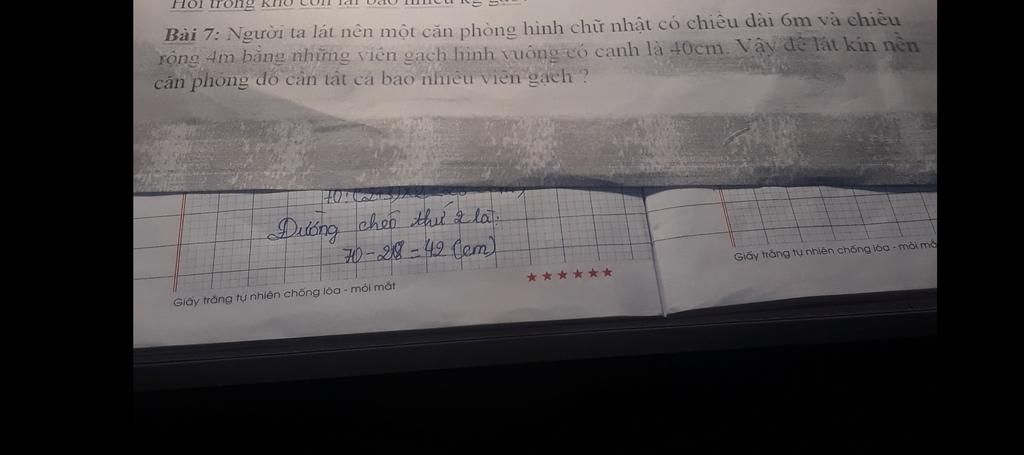 Hỏi trong kho còn lại bao nhiêu kg
Bài 7: Người ta lát nên một căn phòng hình chữ nhật có chiều dài 6m và chiều
rộng 4m bằng những viên gạch hình vuông có cạnh là 40cm. Vậy để lát kín nền
căn phòng đó cần tất cả bao nhiêu viên gạch ?
Đường chéo thứ 2 là:
70 - 28 = 42 (cm)
Giấy trắng tự nhiên chống lóa - mỏi mắt
Giấy trắng tự nhiên chống lóa - mỏi mắ